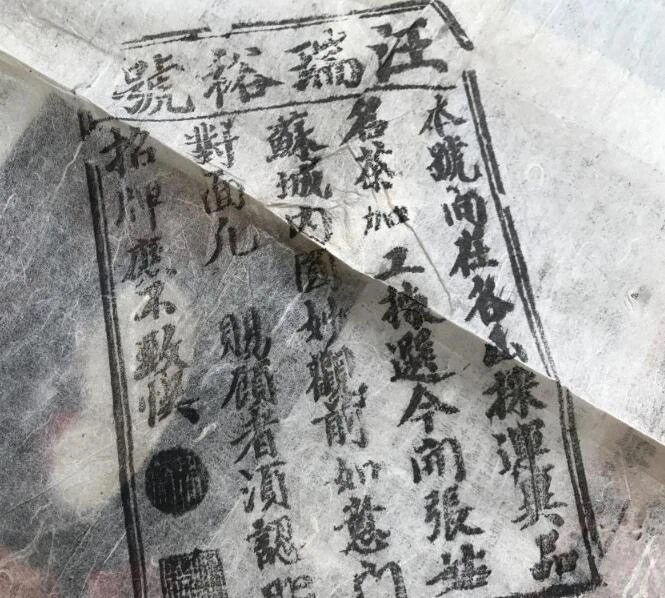 汪瑞裕號
本號向各山採真品
名茶加工揀選今開張姑
蘇城內圓妙觀前如意門
對面凡 賜顧者須認明
招牌庶不致悞